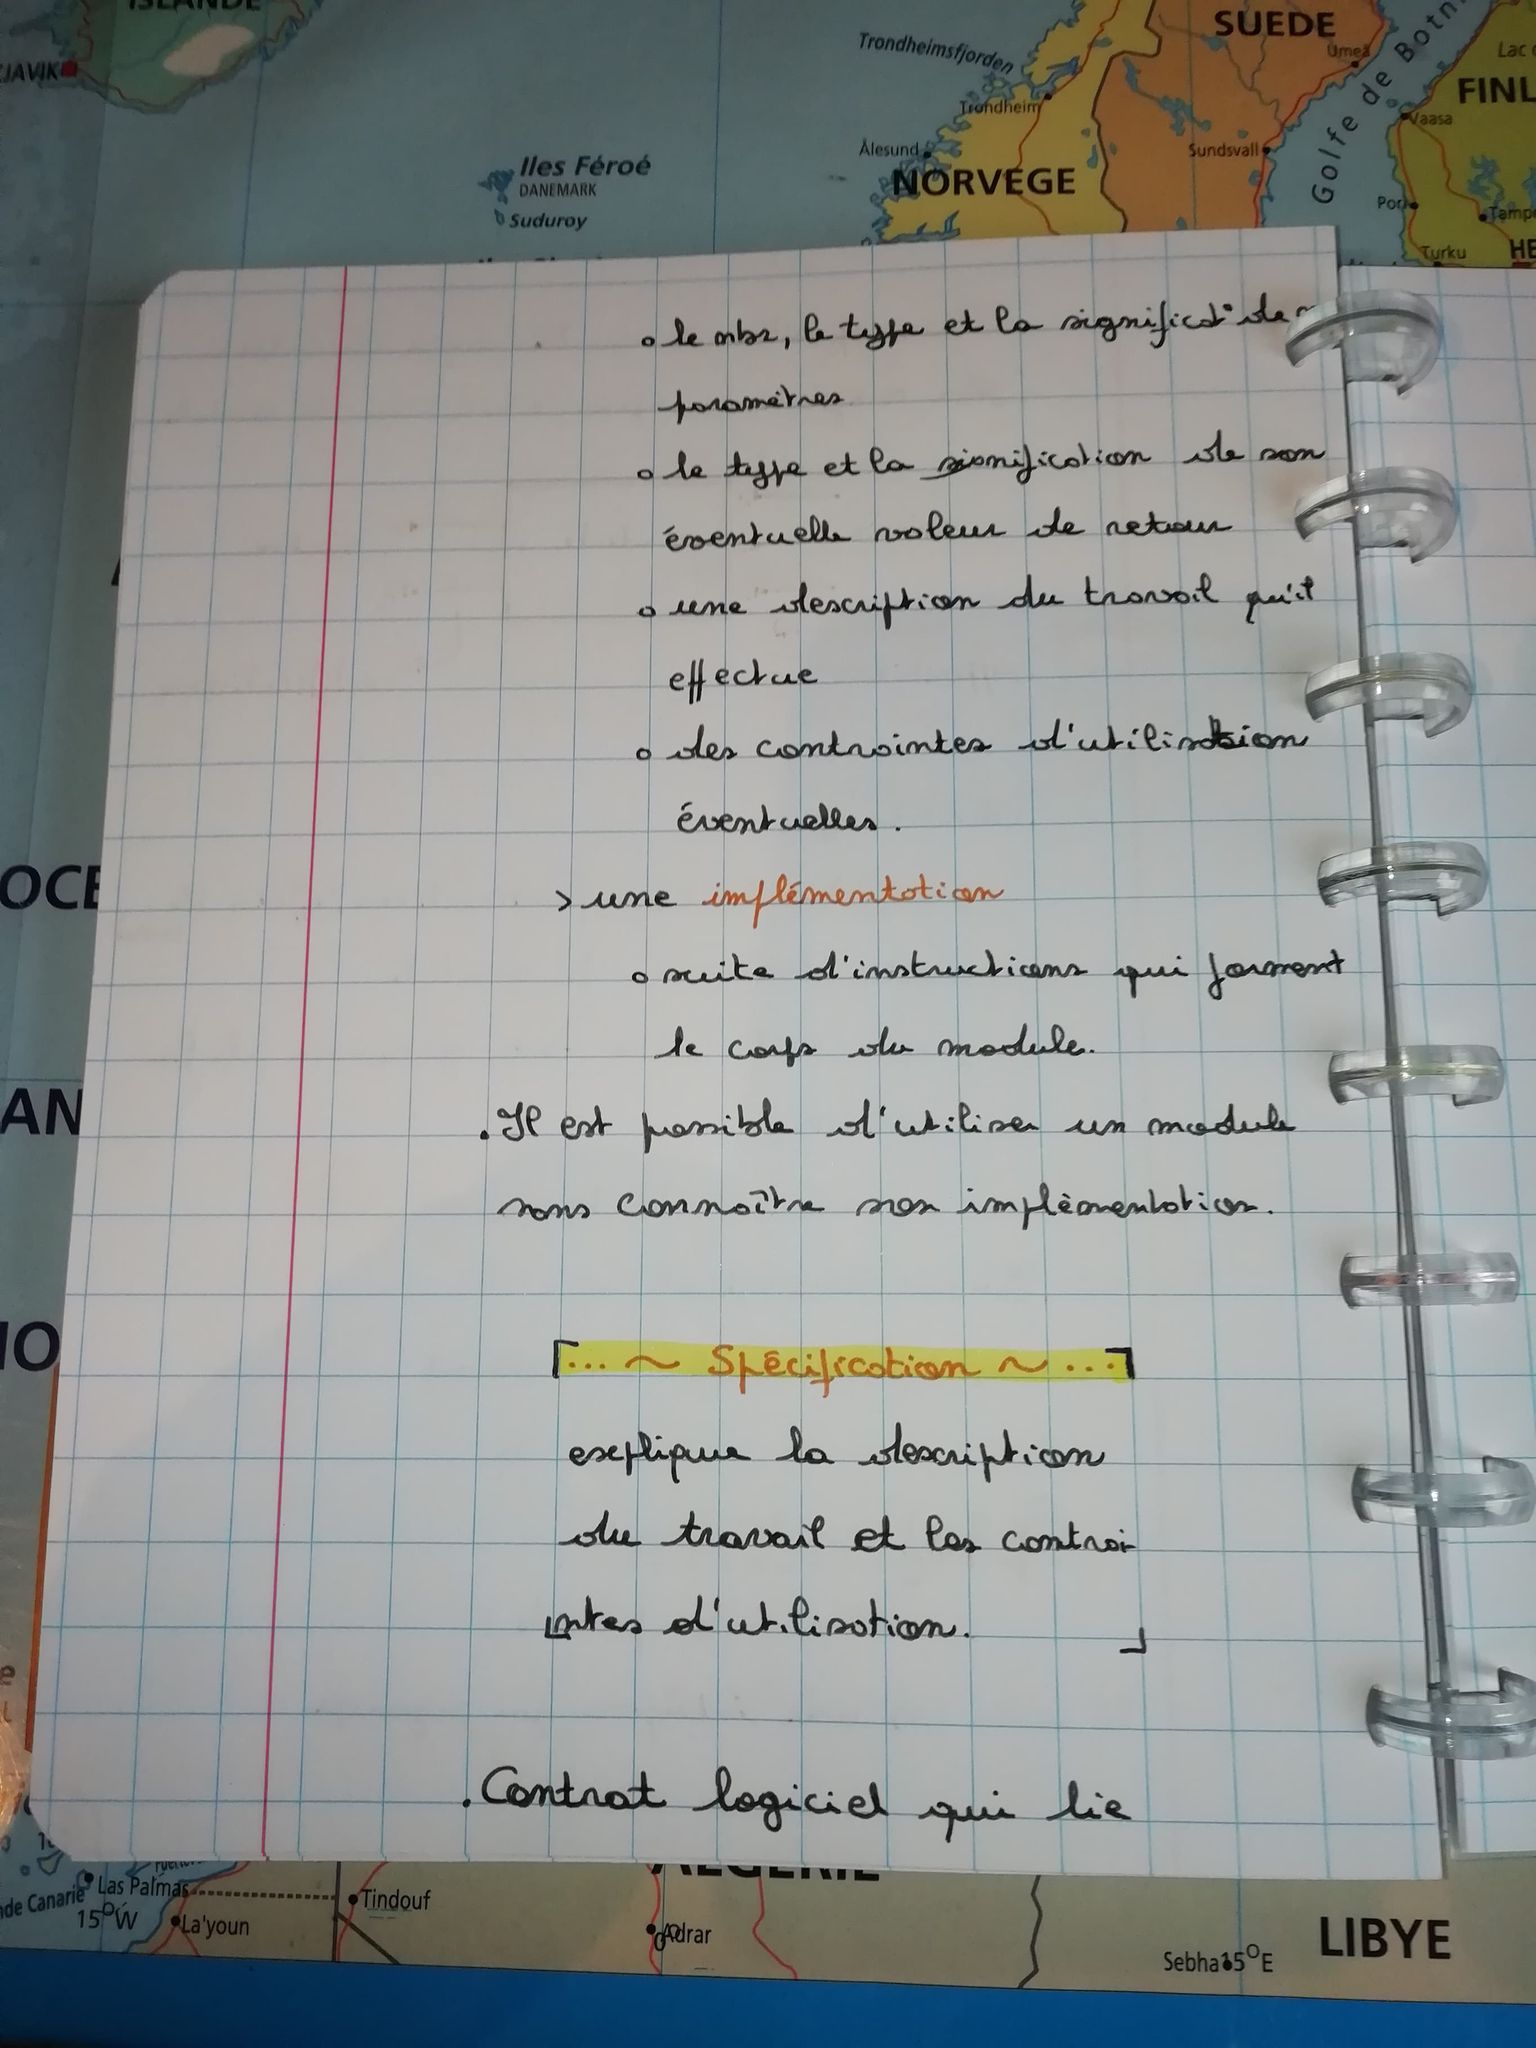 ISLANDE
JAVIK
Trondheimsfjorden
Trondheim
SUEDE
Umeå
Golfe de Botn
Lac
FINL
Vaasa
Ålesund
NORVEGE
Sundsvall
Iles Féroé
DANEMARK
Suduroy
Pori
Tampe
Turku
HE
o le nbr, le type et la significat° de
paramètres
o le type et la signification de son
éventuelle valeur de retour
o une description du travail qu'il
effectue
o des contraintes d'utilisation
éventuelles.
> une implémentation
o suite d'instructions qui forment
le corps du module.
. Il est possible d'utiliser un module
sans connaître son implémentation.
... ~ Spécification ~ ...
explique la description
du travail et les contrai
ntes d'utilisation.
. Contrat logiciel qui lie
OCE
AN
ALGERIE
de Canarie
Las Palmas
15°W
La'youn
Tindouf
Adrar
Sebha
15°E
LIBYE